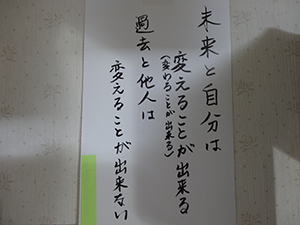 未来と自分は
変えることが出来る
(変わることが出来る)
過去と他人は
変えることが出来ない